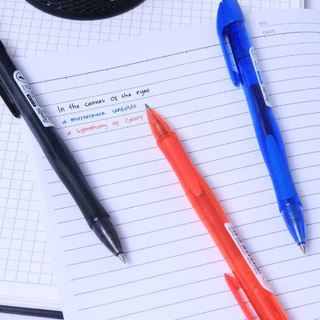 NO.
DATE
In the canvas of the eyes
a masterpiece unfolds
a symphony of colors